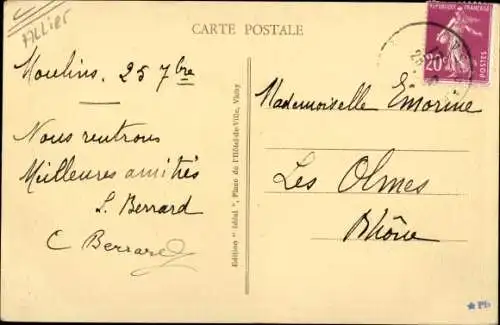 Allier
CARTE POSTALE
REPUBLIQUE FRANÇAISE
20c
POSTES
Moulins, 25 7bre
Nous rentrons
Meilleures amitiés
S. Berrard
C Berrard
Edition "Idéal", Place de l'Hôtel-de-Ville, Vichy
Mademoiselle Emorine
Les Olmes
Rhône
Pb